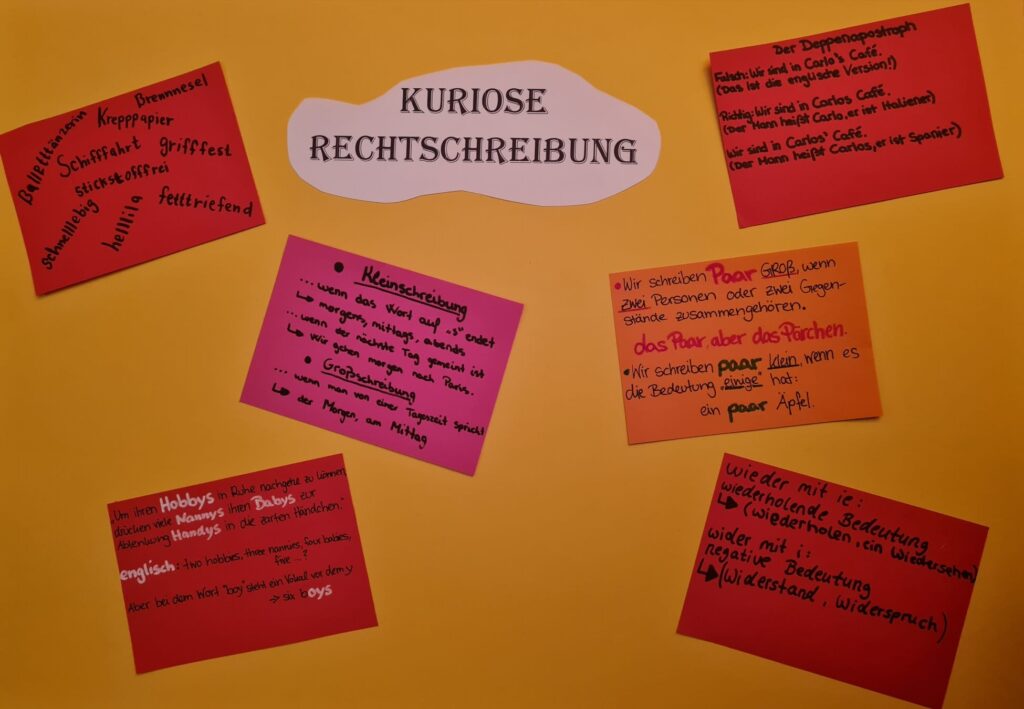 KURIOSE
RECHTSCHREIBUNG
Balletttänzerin
Brennnesel
Krepppapier
Schifffahrt
grifffest
stickstofffrei
schnelllebig
helllila
fetttriefend
Der Deppenapostroph
Falsch: Wir sind in Carlo's Café.
(Das ist die englische Version!)
Richtig: Wir sind in Carlos Café.
(Der Mann heißt Carlo, er ist Italiener)
Wir sind in Carlos' Café.
(Der Mann heißt Carlos, er ist Spanier)
• Kleinschreibung
...wenn das Wort auf „s" endet
↳ morgens, mittags, abends
...wenn der nächste Tag gemeint ist
↳ Wir gehen morgen nach Paris.
• Großschreibung
... wenn man von einer Tageszeit spricht
↳ der Morgen, am Mittag
• Wir schreiben Paar GROß, wenn
zwei Personen oder zwei Gegen-
stände zusammengehören.
das Paar, aber das Pärchen.
• Wir schreiben paar klein, wenn es
die Bedeutung „einige" hat:
ein paar Äpfel.
„Um ihren Hobbys in Ruhe nachgehen zu können,
drücken viele Nannys ihren Babys zur
Ablenkung Handys in die zarten Händchen."
englisch: two hobbies, three nannies, four babies,
five ...?
Aber bei dem Wort "boy" steht ein Vokal vor dem y
⇒ six boys
wieder mit ie:
wiederholende Bedeutung
↳ (wiederholen, ein Wiedersehen)
wider mit i:
negative Bedeutung
↳ (Widerstand, Widerspruch)